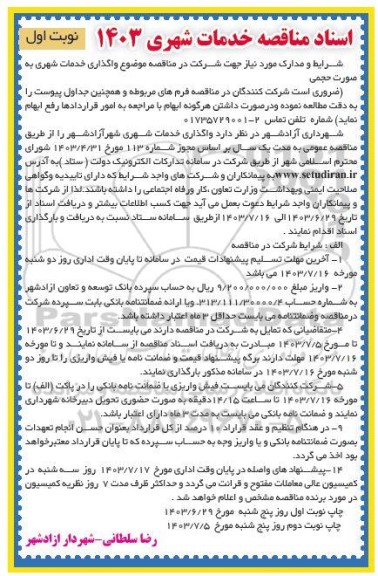 نوبت اول
اسناد مناقصه خدمات شهری ۱۴۰۳
شرایط و مدارک مورد نیاز جهت شرکت در مناقصه موضوع واگذاری خدمات شهری به
صورت حجمی
(ضروری است شرکت کنندگان در مناقصه فرم های مربوطه و همچنین جداول پیوست را
به دقت مطالعه نموده ودرصورت داشتن هرگونه ابهام با مراجعه به امور قراردادها رفع ابهام
نماید) شماره تلفن تماس ۲-۰۱۷۳۵۷۲۹۰۰۱
شهرداری آزادشهر در نظر دارد واگذاری خدمات شهری شهرآزادشهر را از طریق
مناقصه عمومی به مدت یک سال بر اساس مجوز شماره ۱۱۳ مورخ ۱۴۰۳/۴/۳۱ شورای
محترم اسلامی شهر از طریق شرکت در سامانه تدارکات الکترونیک دولت ( ستاد )به آدرس
www.setudiran.ir به پیمانکاران و شرکت های واجد شرایط که دارای تاییدیه وگواهی
صلاحیت ایمنی وبهداشت وزارت تعاون ،کار ورفاه اجتماعی را داشته باشند.لذا از شرکت ها
و پیمانکاران واجد شرایط دعوت بعمل می آید جهت کسب اطلاعات بیشتر و دریافت اسناد از
تاریخ ۱۴۰۳/۶/۲۹ الی ۱۴۰۳/۷/۱۶ ازطریق سامانه ستاد نسبت به دریافت و بارگذاری
اسناد اقدام نمایند .
الف : شرایط شرکت در مناقصه
۱- آخرین مهلت تسلیم پیشنهادات قیمت در سامانه تا پایان وقت اداری روز دو شنبه
مورخه ۱۴۰۳/۷/۱۶ می باشد
۲- واریز مبلغ ۹/۲۰۰/۰۰۰/۰۰۰ ریال به حساب سپرده بانک توسعه و تعاون ازادشهر
به شماره حساب ۳۱۳/۱۱۱/۳۰۰۰۰/۴ ویا ارائه ضمانتنامه بانکی بابت سپرده شرکت
درمناقصه وضمانتنامه می بایست حداقل ۳ ماه اعتبار داشته باشد.
۴-متقاضیانی که تمایل به شرکت در مناقصه دارند می بایست از تاریخ ۱۴۰۳/۶/۲۹
تا مورخ ۱۴۰۳/۷/۵ مبادرت به دریافت اسناد مناقصه از سامانه نمایند و تا مورخه
۱۴۰۳/۷/۱۶ مهلت دارند برگه پیشنهاد قیمت و ضمانت نامه یا فیش واریزی را تا روز دو
شنبه مورخ ۱۴۰۳/۷/۱۶ در سامانه مذکور بارگذاری نمایند.
۵-شرکت کنندگان می بایست فیش واریزی یا ضمانت نامه بانکی را در پاکت (الف) تا
مورخه ۱۴۰۳/۷/۱۶ تا ساعت ۱۴/۱۵دقیقه به صورت حضوری تحویل دبیرخانه شهرداری
نمایند و ضمانت نامه بانکی می بایست به مدت ۳ ماه دارای اعتبار باشد.
۹- در هنگام تنظیم و عقد قرارداد ۱۰ درصد از کل قرارداد بعنوان حسن انجام تعهدات
بصورت ضمانتنامه بانکی و یا واریز وجه به حساب سپرده که تا پایان قرارداد معتبرخواهد
بود اخذ می گردد.
۱۴-پیشنهاد های واصله در پایان وقت اداری مورخ ۱۴۰۳/۷/۱۷ روز سه شنبه در
کمیسیون عالی معاملات مفتوح و قرائت می گردد و حداکثر ظرف مدت ۷ روز نظریه کمیسیون
در مورد برنده مناقصه مشخص و اعلام خواهد شد .
چاپ نوبت اول روز پنج شنبه مورخ ۱۴۰۳/۶/۲۹
چاپ نوبت دوم روز پنج شنبه مورخ ۱۴۰۳/۷/۵
رضا سلطانی-شهردار ازادشهر